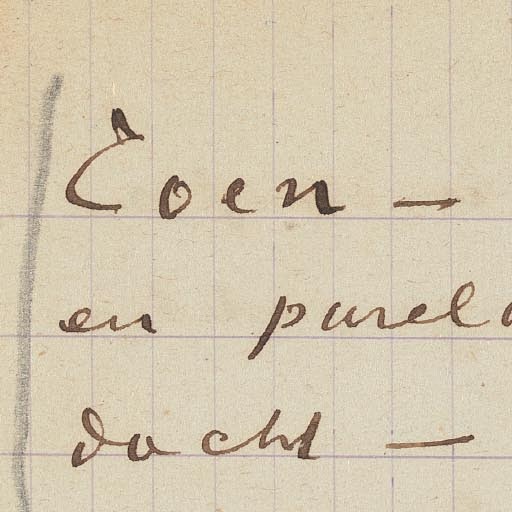 Coen —
en parel
dacht —